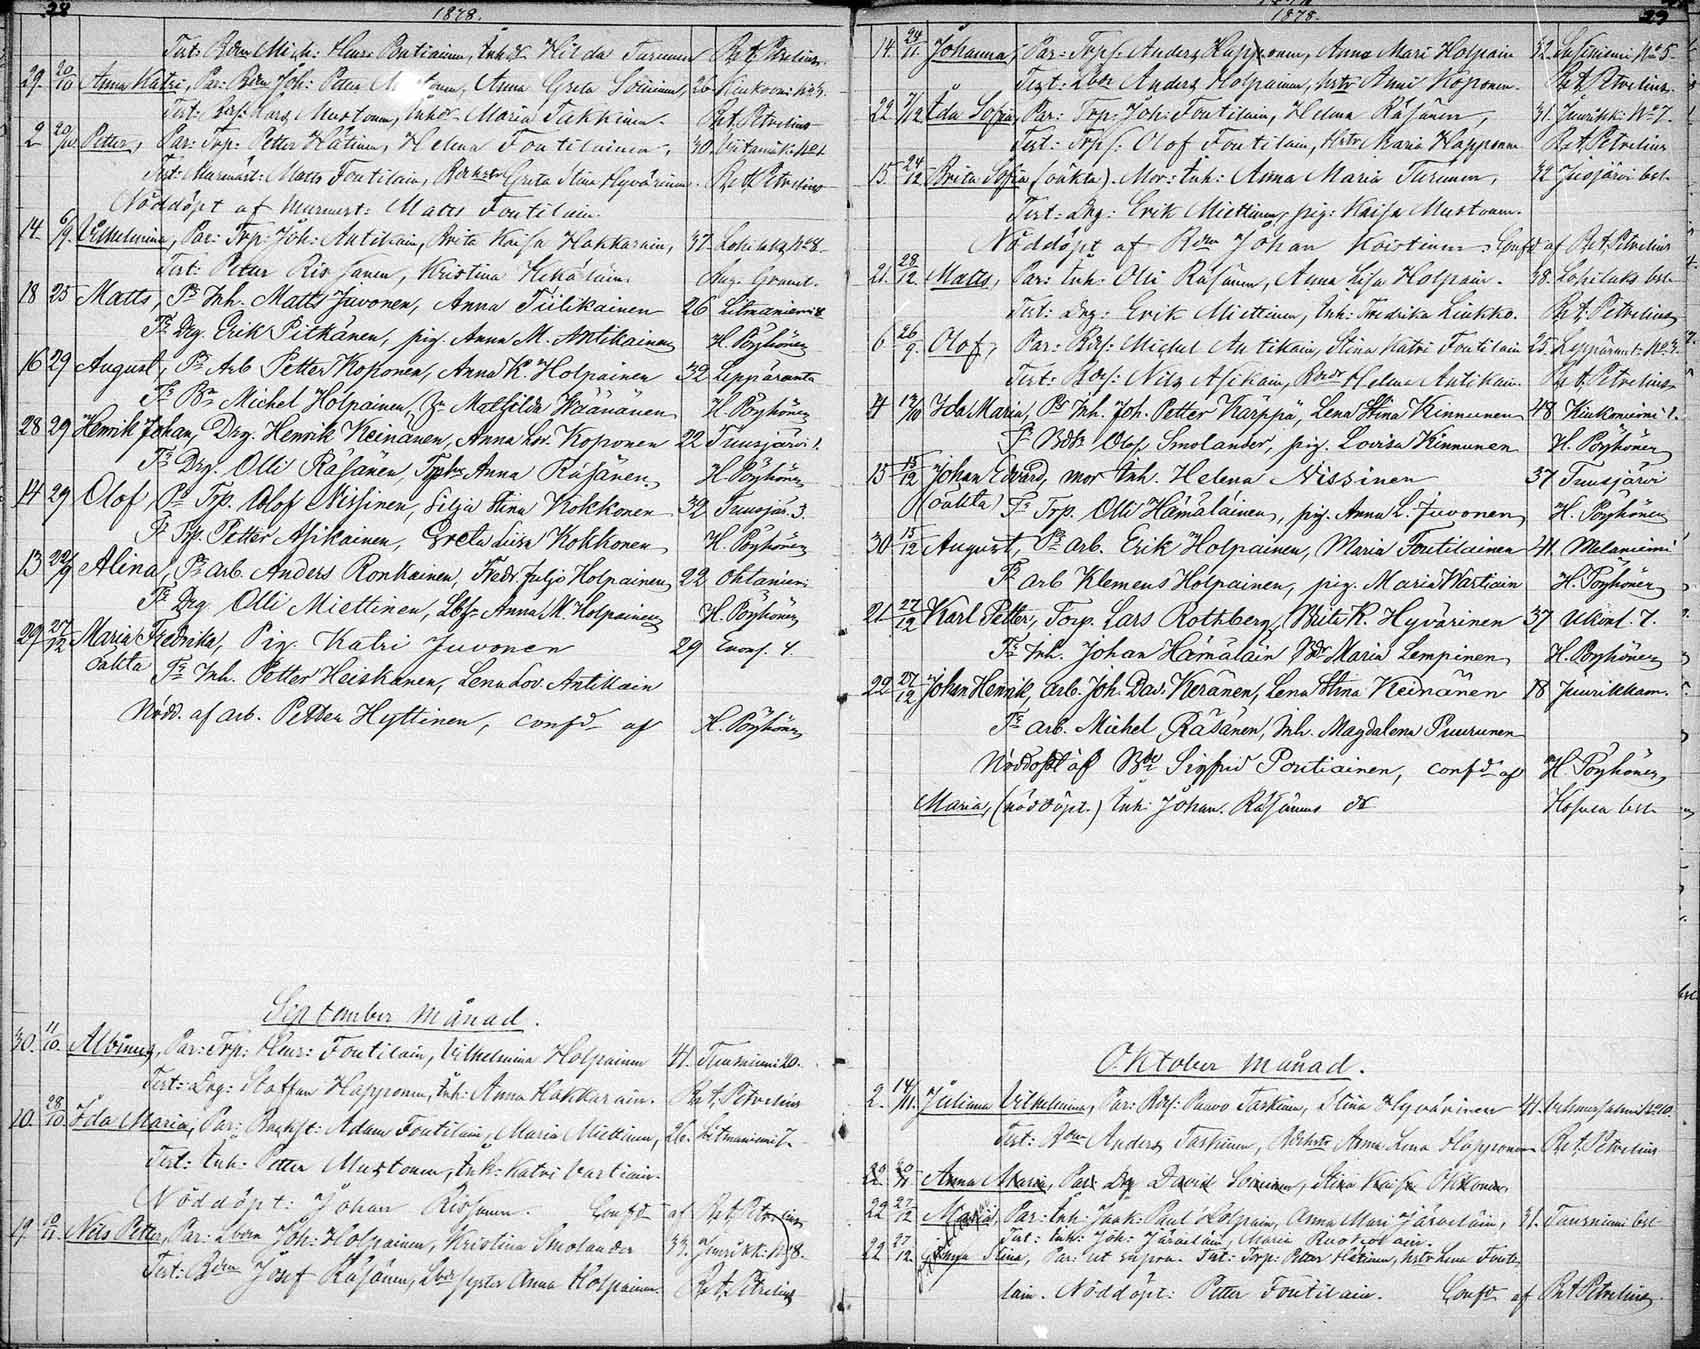 28
1878.
Test: Bdrn Mich: Henr: Putiainen, Inh dr Hilda Turunen R. A. Petrelius
29. 20/10 Anna Katri, Par: Bdrn Joh: Petter Mustonen, Anna Greta Soininen, 26. Kiukoniemi No 3.
Test: Lars Mustonen, Inh dr Maria Tukkinen. R. A. Petrelius
2 20/10 Petter, Par: Trp: Petter Hätinen, Helena Foutilainen, 30.
Test: Murmäst: Matts Foutilain, Greta Stina Hyvärinen R. A. Petrelius
Nöddöpt af murmest: Matts Foutilain.
14. 6/9. Vilhelmina, Par: Trp: Joh: Antikain, Brita Kaisa Hakkarain, 37. No 8.
Test: Petter Rissanen, Kristina
18 25 Matts, Pr Inh. Matts Juvonen, Anna Tiilikainen 26 Litmaniemi 8
Tr Drg. Erik Pitkänen, pig. Anna M. Antikainen H. Pöyhönen
16 29 August, Pr Arb Petter Koponen, Anna K. Holpainen 32 Leppäranta
Tr Bn Michel Holpainen, Mathilda Wäänänen H. Pöyhönen
28 29 Henrik Johan, Drg. Henrik Keinänen, Anna Lov. Koponen 22 Tuusjärvi 1.
Tr Drg. Olli Räsänen, Anna Räsänen. H. Pöyhönen
14 29 Olof, Pr Trp. Olof Nissinen, Silja Stina Kokkonen 32 Tuusjär. 3.
Tr Trp. Petter Asikainen, Greta Liisa Kokkonen H. Pöyhönen
13 22/9 Alina, Pr arb. Anders Ronkainen, Fredr. Julja Holpainen 22 Ohtaniemi
Tr Drg. Olli Miettinen, Anna M. Holpainen H. Pöyhönen
29 27/12 Maria Fredrika, Pig. Katri Juvonen 29 Enonj. 4.
oäkta Tr Inh. Petter Heiskanen, Lena Lov. Antikain
Nödd. af arb. Petter Hyttinen, confd af H. Pöyhönen
September månad.
30. 11/10. Albinus, Par: Trp: Henr: Foutilain, Vilhelmina Holpainen 41. Tuusniemi 20.
Test: Drg: Staffan Happonen, Inh: Anna Hakkarain. R. A. Petrelius
10. 28/10. Ida Maria, Par: Adam Foutilain, Maria Miettinen, 26. Litmaniemi 7.
Test: Inh: Petter Mustonen, Inh: Katri Vartiain.
Nöddöpt: Johan Rissanen. Confd af R. A. Petrelius
19. Nils Petter, Par: Joh: Holpainen, Kristina Smolander 33. Juurikk: No 8.
Test: Bdrn Josef Räsänen, Anna Holpainen. R. A. Petrelius
29
1878.
14. 24/11. Johanna, Par: Trp: Anders Happonen, Anna Mari Holpain 32. No 5.
Test: Anders Holpainen, hstr Anna Koponen. R. A. Petrelius
22 7/12 Ida Sofia, Par: Trp: Joh: Foutilain, Helena Räsänen, 31. Juurikk: No 7.
Test: Trp: Olof Foutilain, Hstr Maria Happonen R. A. Petrelius
15. 24/12 Brita Sofia (oäkta). Mor: Inh: Anna Maria Turunen, 32 Juojärvi bol.
Test: Drg: Erik Miettinen, pig: Kaisa Mustonen.
Nöddöpt af Bdrn Johan Koistinen. Confd af R. A. Petrelius
21. 28/12. Matts, Par: Inh: Olli Räsänen, Anna Lisa Holpain. 38. Lapilaks bol.
Test: Drg: Erik Miettinen, Inh: Fredrika Liukko. R. A. Petrelius
6 26/9. Olof, Par: Bdrs: Michel Antikain, Stina Katri Foutilain 25. Leppärant: No 3.
Test: Bdrs: Nils Asikain, Helena Antikain. R. A. Petrelius
4 12/10 Ida Maria, Pr Inh. Joh. Petter Kärppä, Lena Stina Kinnunen 48. Kiukoniemi 1.
Tr Bdr Olof Smolander, pig. Lovisa Kinnunen H. Pöyhönen
15 15/12 Johan Edvard, mor Inh. Helena Nissinen 37 Tuusjärvi
oäkta Tr Trp. Olli Hämäläinen, pig. Anna L. Juvonen H. Pöyhönen
30 15/12 August, Pr arb. Erik Holpainen, Maria Foutilainen 41. Melaniemi
Tr arb Klemens Holpainen, pig. Maria Wartiain H. Pöyhönen
21 27/12 Karl Petter, Torp. Lars Rothberg, Brita K. Hyvärinen 37 Ukonl. 7.
Tr Inh. Johan Hämäläin Maria Lempinen H. Pöyhönen
22 27/12 Johan Henrik, arb. Joh. Dav. Keränen, Lena Stina Keinänen 18 Juurikkam.
Tr arb. Michel Räsänen, Inh. Magdalena Puurunen
Nöddöpt af Sigfrid Pontiainen, confd af H. Pöyhönen
Maria, (nöddöpt.) Inh: Johan Räsänens dr Kosula bol.
Oktober månad.
2. 14/11. Juliana Vilhelmina, Par: Paavo Taskinen, Stina Hyvärinen 41. Vehmersalmi No 20.
Test: Bdrn Anders Taskinen, Anna Lena Happonen R. A. Petrelius
22 Anna Maria, Par: Drg David Soininen, Stina Kaisa Okkonen,
22 27/12 Maria, Par: Inh: Isak: Paul Holpain, Anna Mari Järveläin, 31. Tuusniemi bol.
Test: Inh: Joh: Järveläin, Maria
22 27/12. Stina, Par: ut supra. Test: Torp: Petter Hätinen, hstr Lena Fouti-
lain. Nöddöpt: Petter Foutilain. Confd af R. A. Petrelius